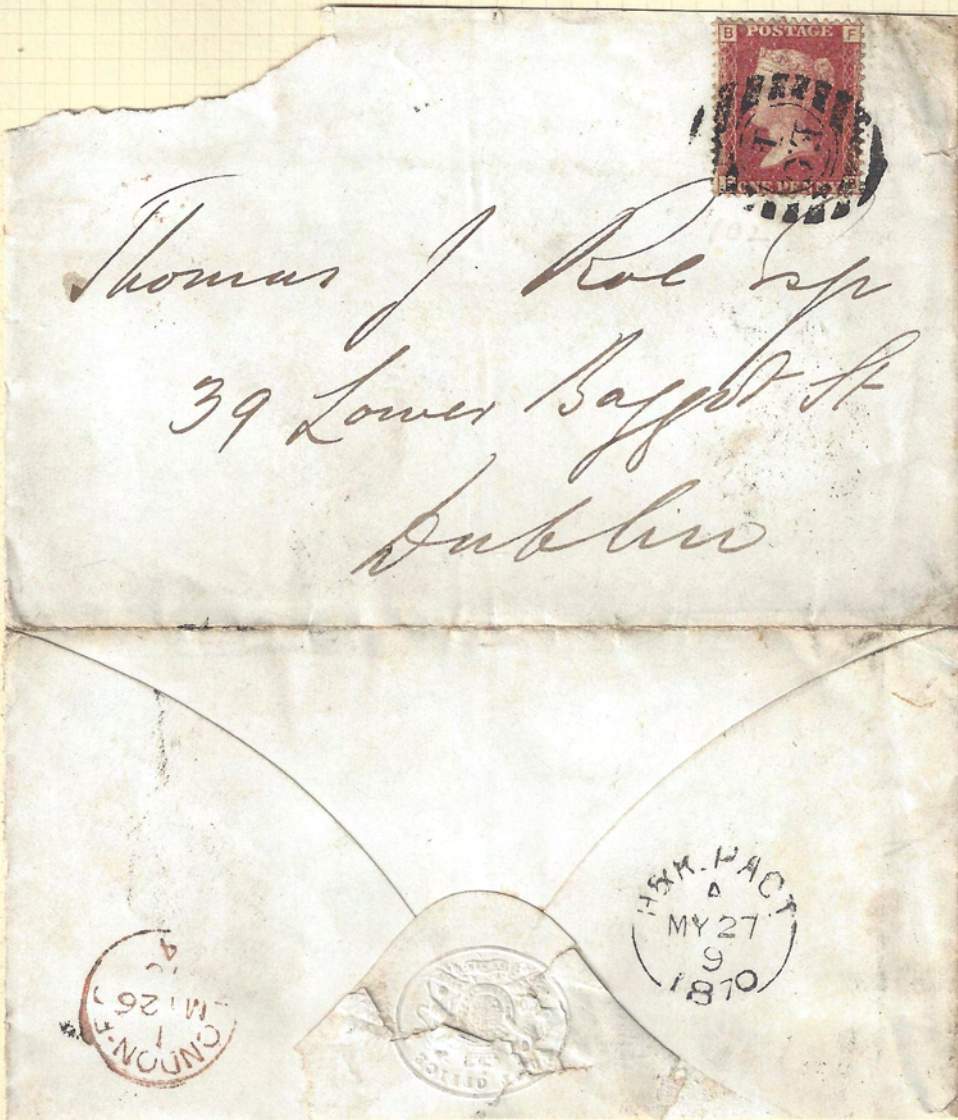 B POSTAGE F
ONE PENNY
Thomas J Roe Esqr
39 Lower Baggot St
Dublin
H&K. PACT
A
MY 27
9
1870
LONDON-E
1
MY 26
OFFICE